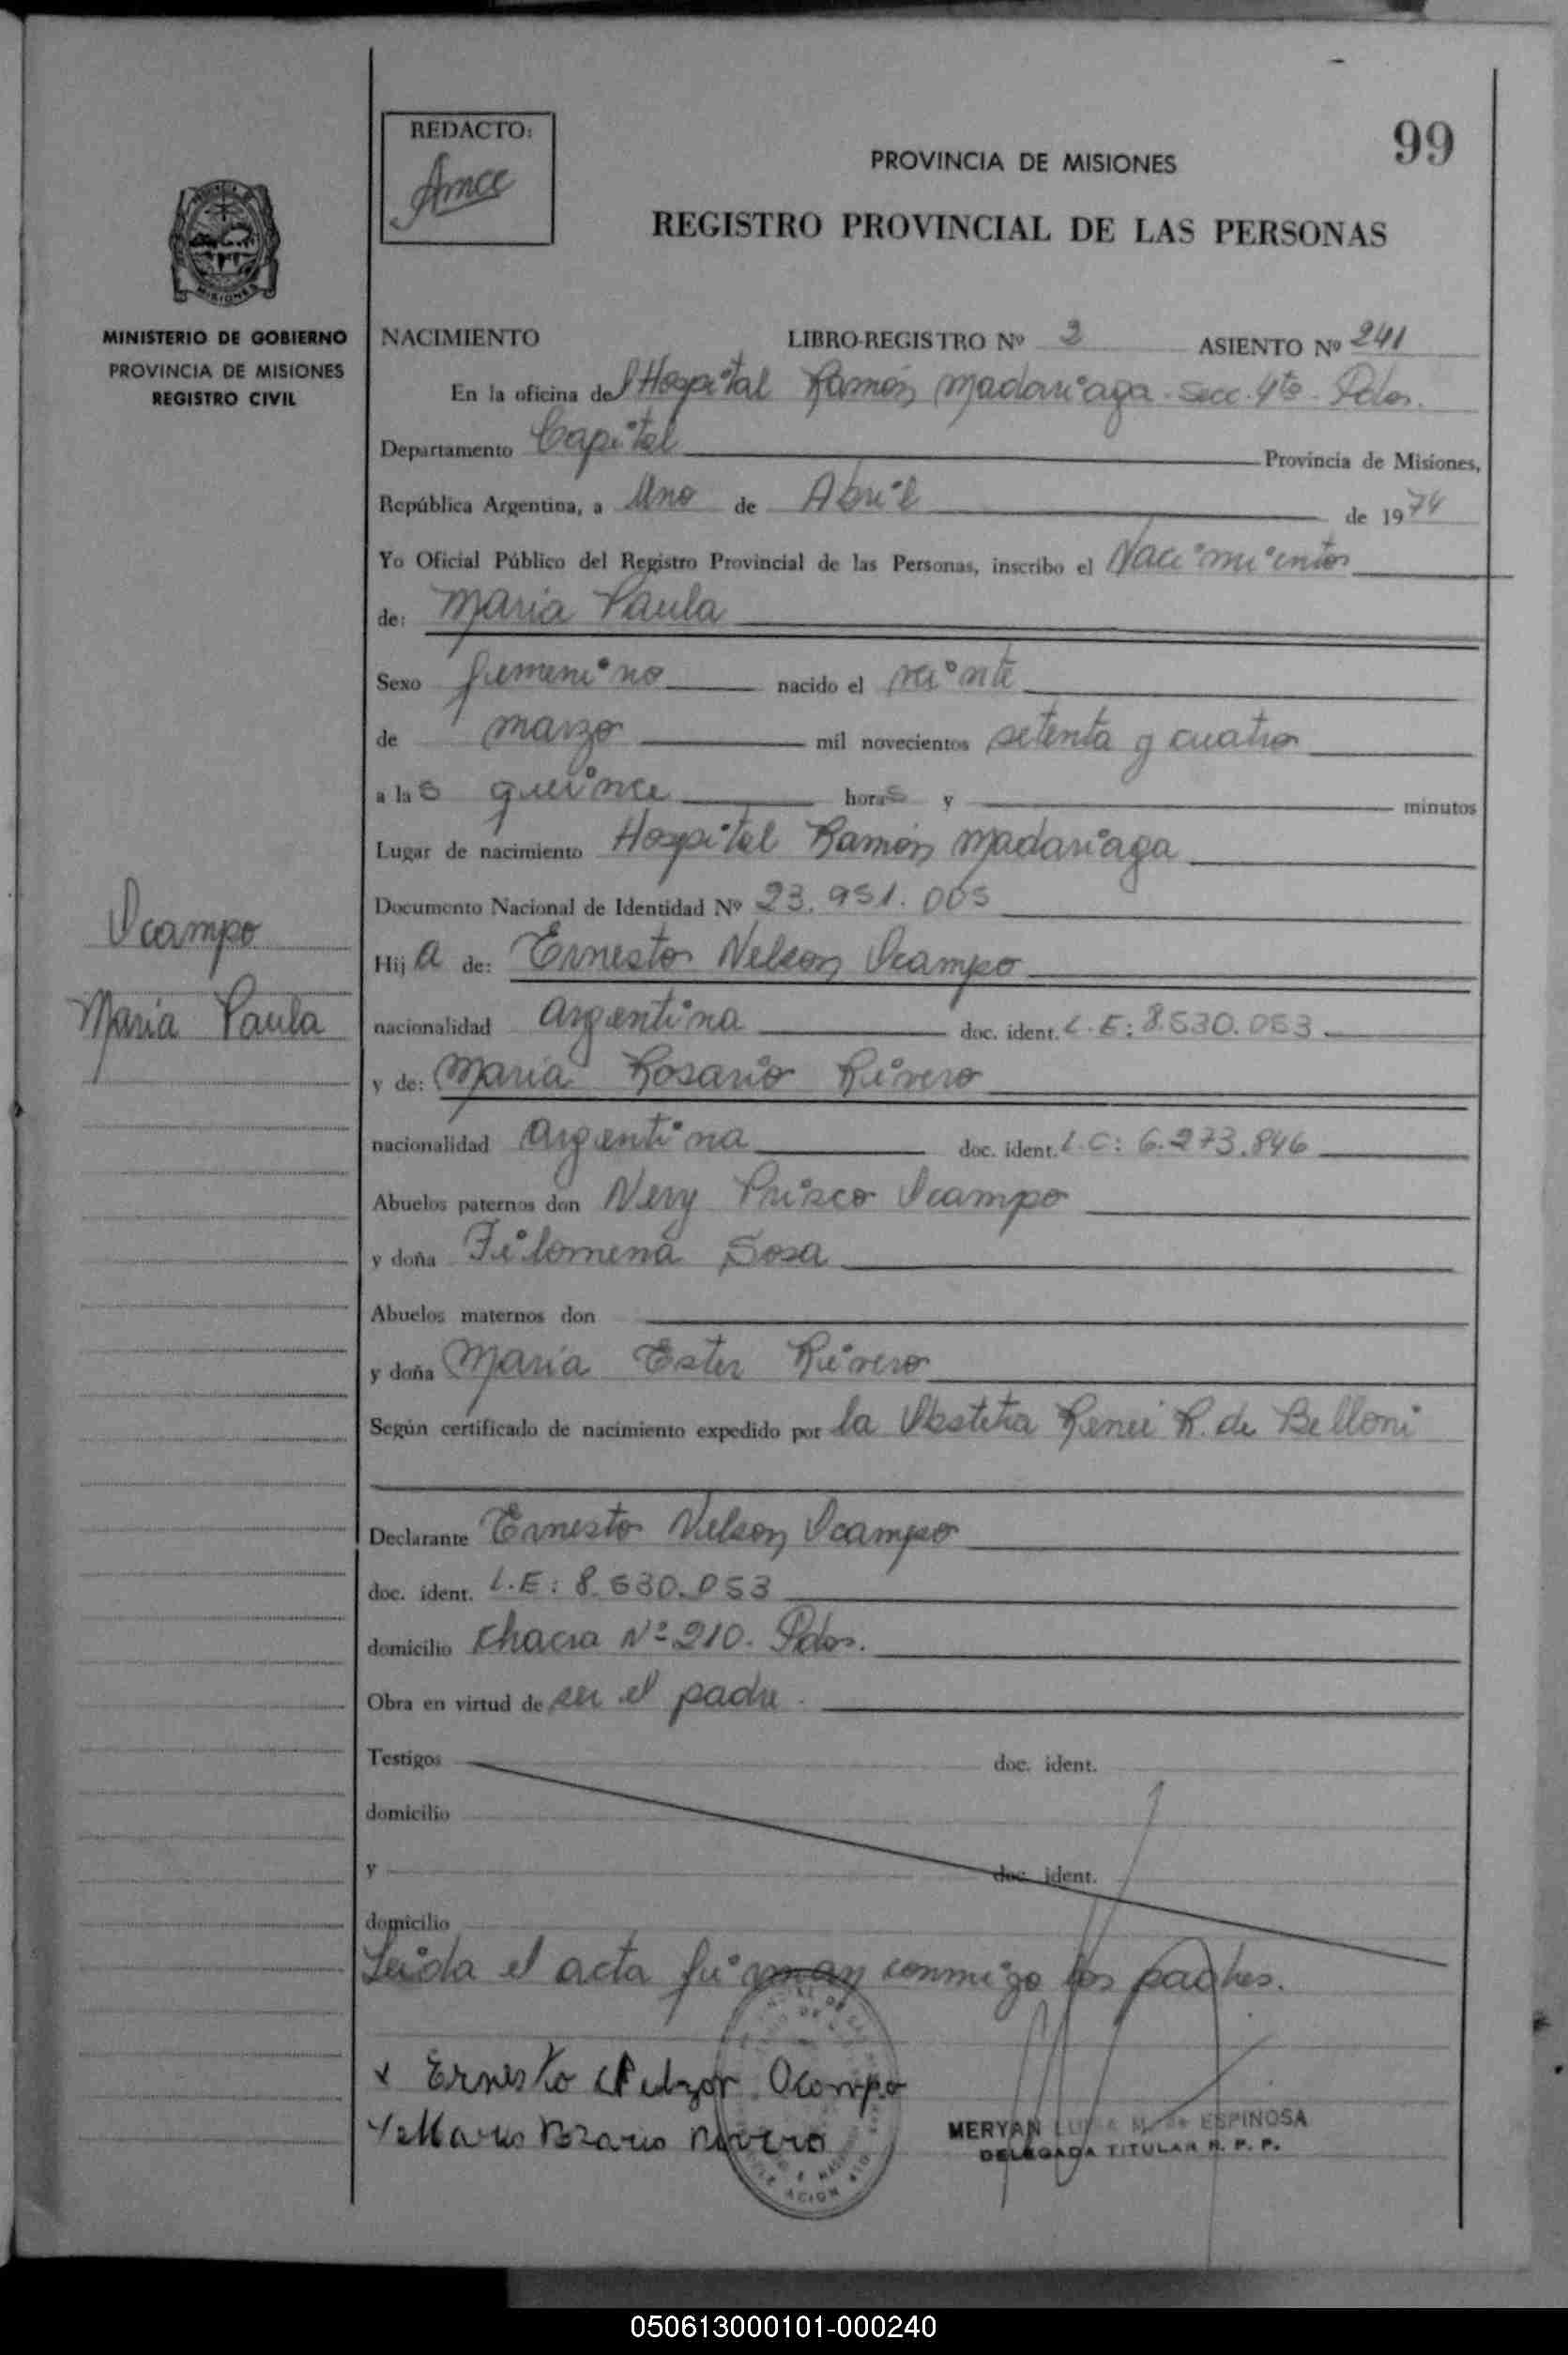 99
REDACTO:
PROVINCIA DE MISIONES
REGISTRO PROVINCIAL DE LAS PERSONAS
MISIONES
MINISTERIO DE GOBIERNO
PROVINCIA DE MISIONES
REGISTRO CIVIL
NACIMIENTO LIBRO-REGISTRO Nº 2 ASIENTO Nº 241
En la oficina del Hospital Ramón Madariaga - Secc. 4ta - Pdas.
Departamento Capital Provincia de Misiones,
República Argentina, a Uno de Abril de 1974
Yo Oficial Público del Registro Provincial de las Personas, inscribo el Nacimiento
de: Maria Paula
Sexo femenino nacido el veinte
de marzo mil novecientos setenta y cuatro
a las quince horas y minutos
Lugar de nacimiento Hospital Ramón Madariaga
Documento Nacional de Identidad Nº 23.951.005
Ocampo
Maria Paula
Hija de: Ernesto Nelson Ocampo
nacionalidad argentina doc. ident. L.E: 8.530.053
y de: Maria Rosario Rivero
nacionalidad argentina doc. ident. L.C: 6.273.846
Abuelos paternos don Nery Prisco Ocampo
y doña Filomena Sosa
Abuelos maternos don
y doña Maria Ester Rivero
Según certificado de nacimiento expedido por la Obstetra Reneé R. de Belloni
Declarante Ernesto Nelson Ocampo
doc. ident. L.E: 8.530.053
domicilio Chacra Nº 210. Pdas.
Obra en virtud de ser el padre.
Testigos doc. ident.
domicilio
y doc. ident.
domicilio
Leída el acta firman conmigo los padres.
x Ernesto Nelson Ocampo
x Maria Rosario Rivero
MERYAN LUISA M. de ESPINOSA
DELEGADA TITULAR R. P. P.
050613000101-000240